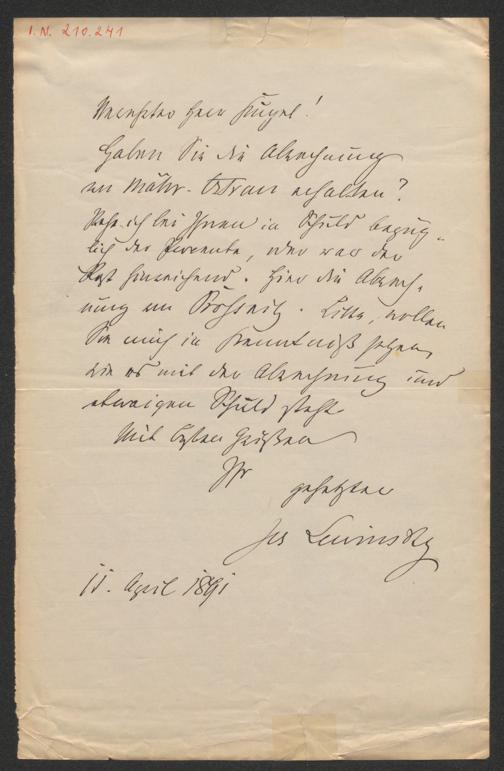 I.N. 210.241
Verehrter Herr Kugel!
Haben Sie die Abrechnung
an Mähr. Ostrau erhalten?
Stehe ich bei Ihnen in Schuld bezüg-
lich der Percente, oder war der
Rest hinreichend. Hier die Abrech-
nung an Proßnitz. Bitte, wollen
Sie mich in Kenntniß setzen
wie es mit der Abrechnung und
etwaigen Schuld steht.
Mit besten Grüßen
Ihr
Jos Lewinsky
11. April 1891